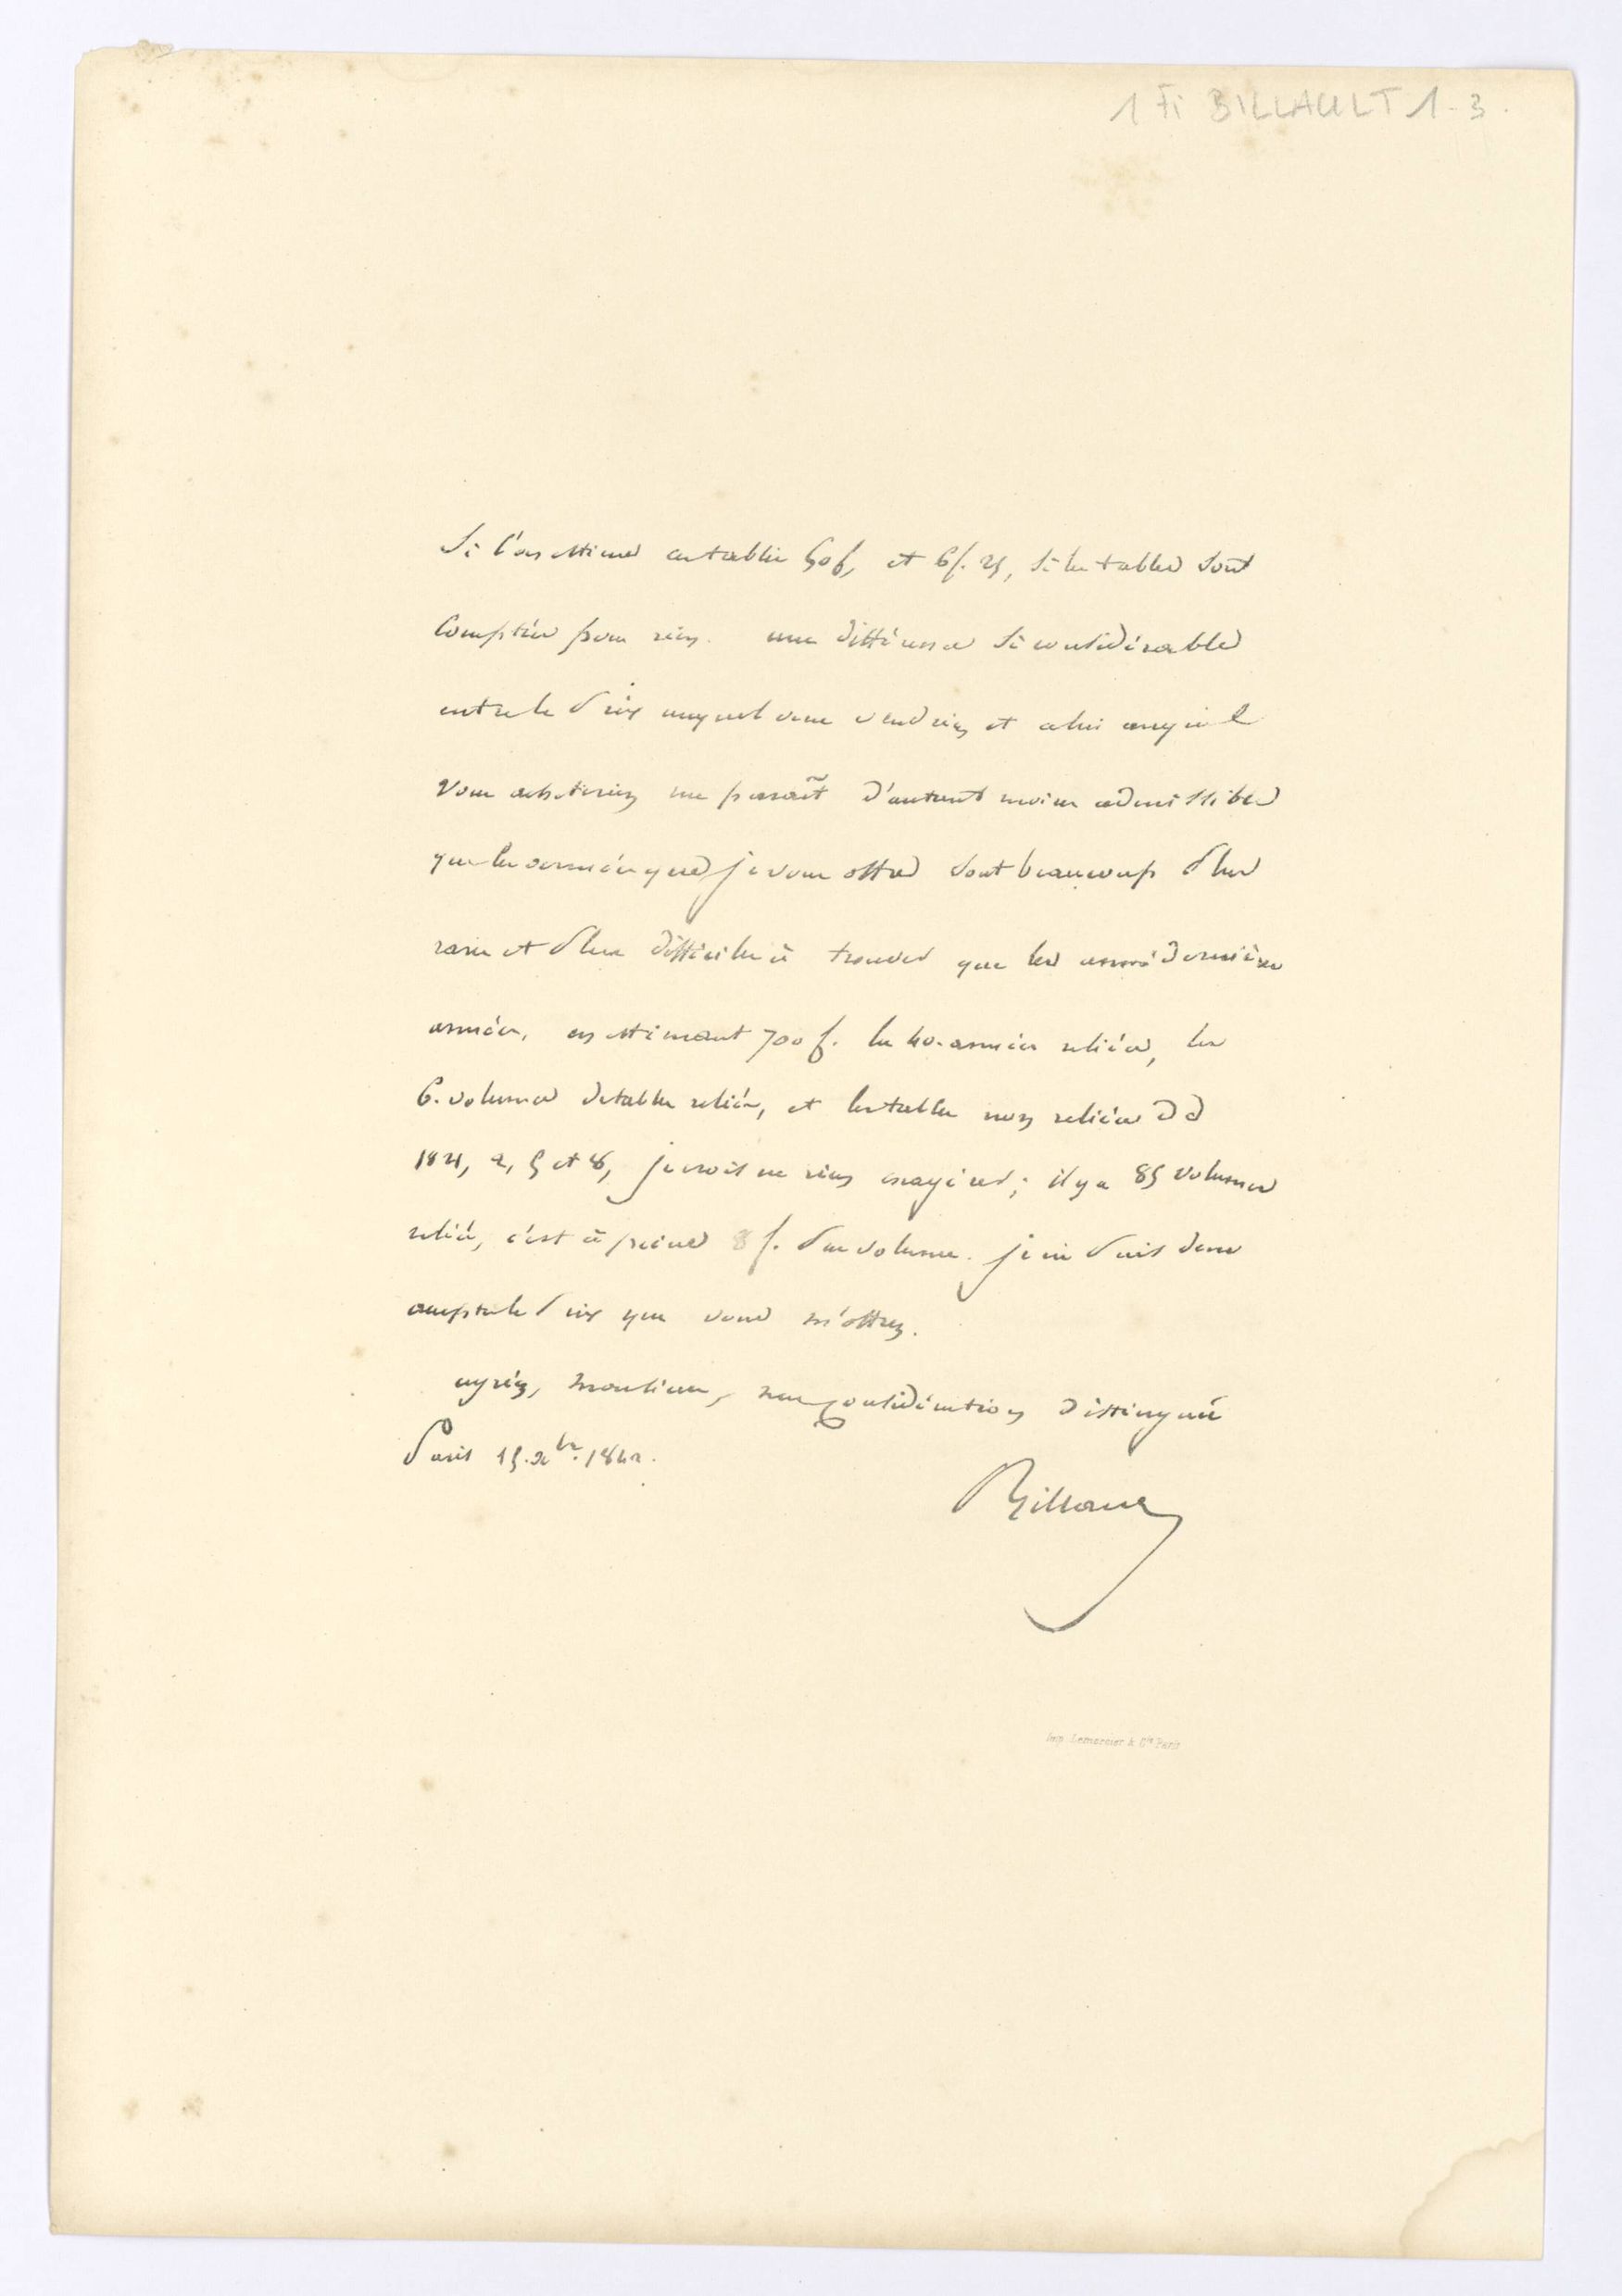 1 Fi BILLAULT 1-3.
Si l'on estime ces tables 50 f, et 6 f. 25, si les tables sont
comptées pour rien. une différence si considérable
entre le prix auquel vous vendriez et celui auquel
vous acheteriez me parait d'autant moins admissible
que les années que je vous offre sont beaucoup plus
rares et plus difficiles à trouver que les dernières
années. en estimant 700 f. les 40. années reliées, les
6. volumes de tables reliés, et les tables non reliées de
1821, 2, 5 et 8, je crois ne rien exagérer; il y a 85 volumes
reliés, c'est à peine 8 f. par volume. je ne puis donc
accepter le prix que vous m'offrez.
agréez, monsieur, ma considération distinguée
Paris 15. xbre. 1842.
Billault
Imp. Lemercier & Cie Paris